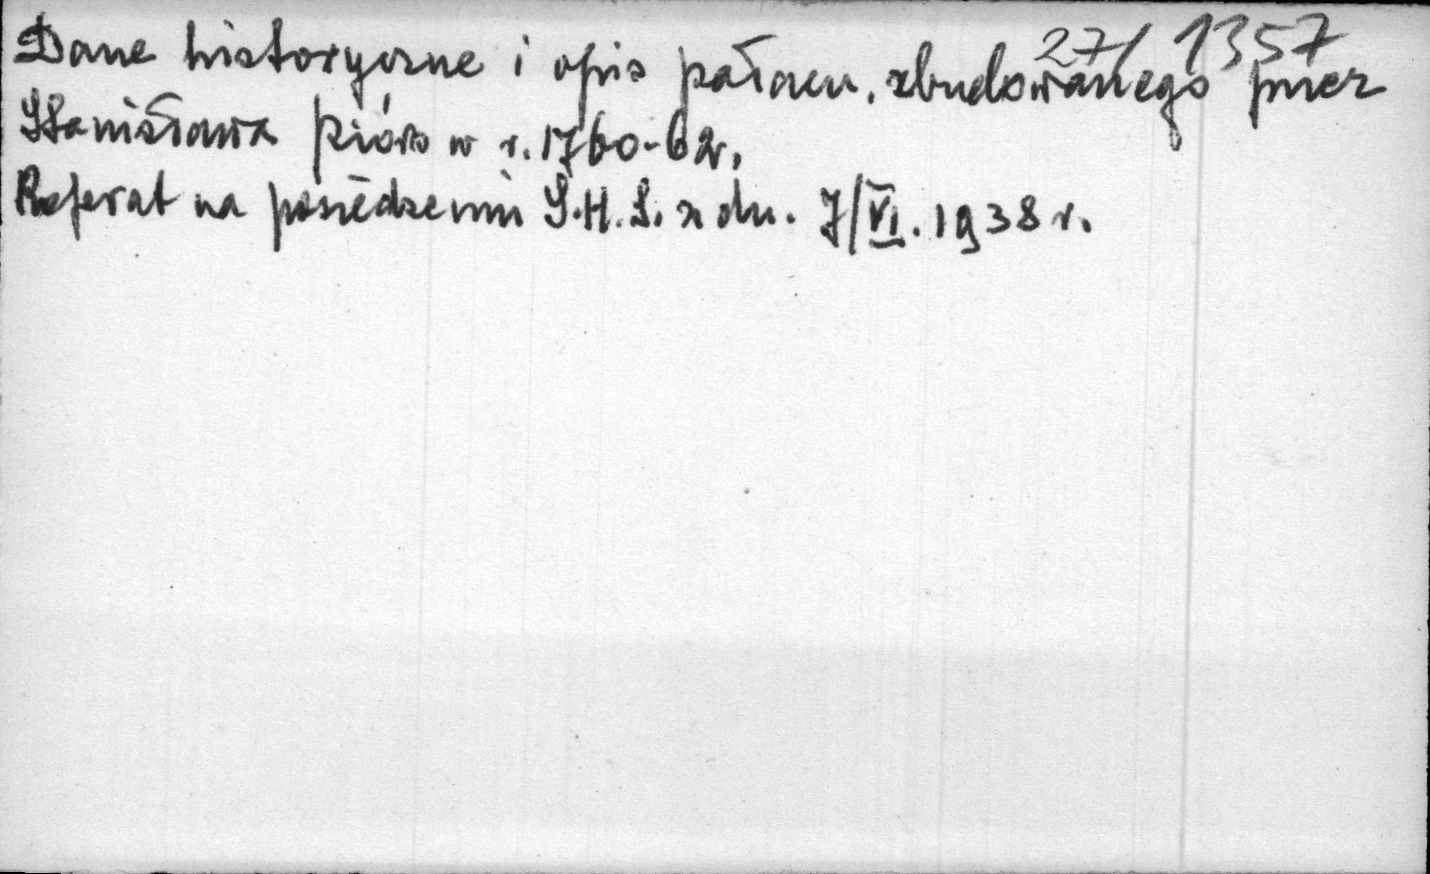 27/1357
Dane historyczne i opis pałacu, zbudowanego przez
Stanisława w r. 1760-62r.
Referat na posiedzeniu S.H.S. z dn. 7/VI. 1938 r.